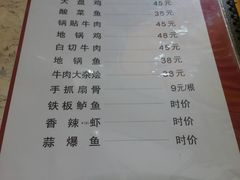 大盘鸡 45元
酸菜鱼 38元
锅贴牛肉 45元
地锅鸡 48元
白切牛肉 45元
地锅鱼 38元
牛肉大杂烩 38元
手抓扇骨 9元/根
铁板鲈鱼 时价
香辣虾 时价
蒜爆鱼 时价